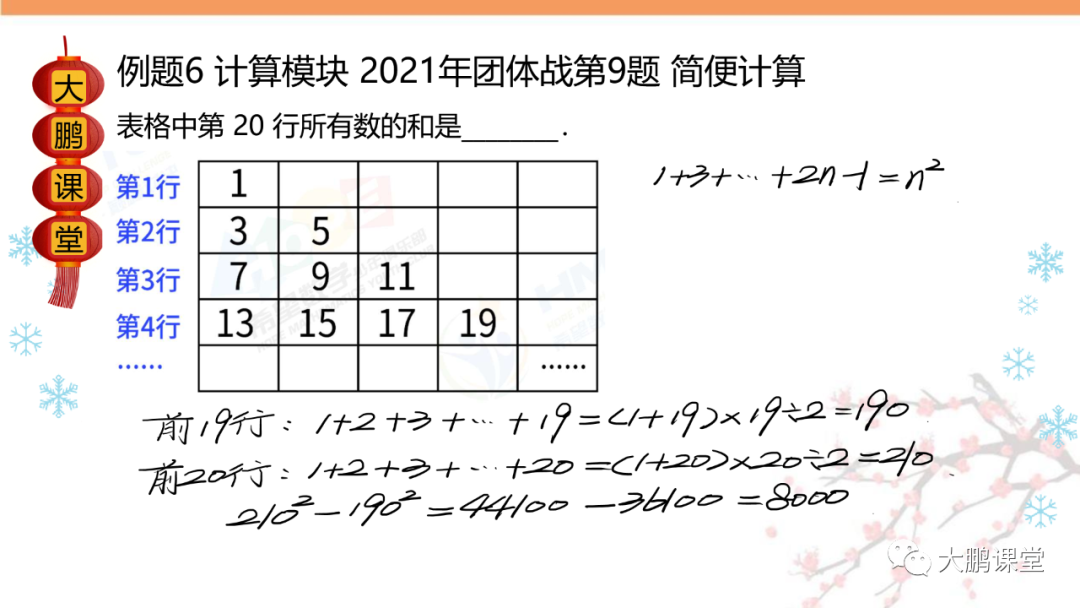 大鹏课堂
例题6 计算模块 2021年团体战第9题 简便计算
表格中第 20 行所有数的和是________.
第1行 1
第2行 3 5
第3行 7 9 11
第4行 13 15 17 19
…… ……
1+3+…+2n-1=n²
前19行: 1+2+3+…+19=(1+19)×19÷2=190
前20行: 1+2+3+…+20=(1+20)×20÷2=210.
210²-190²=44100-36100=8000
大鹏课堂